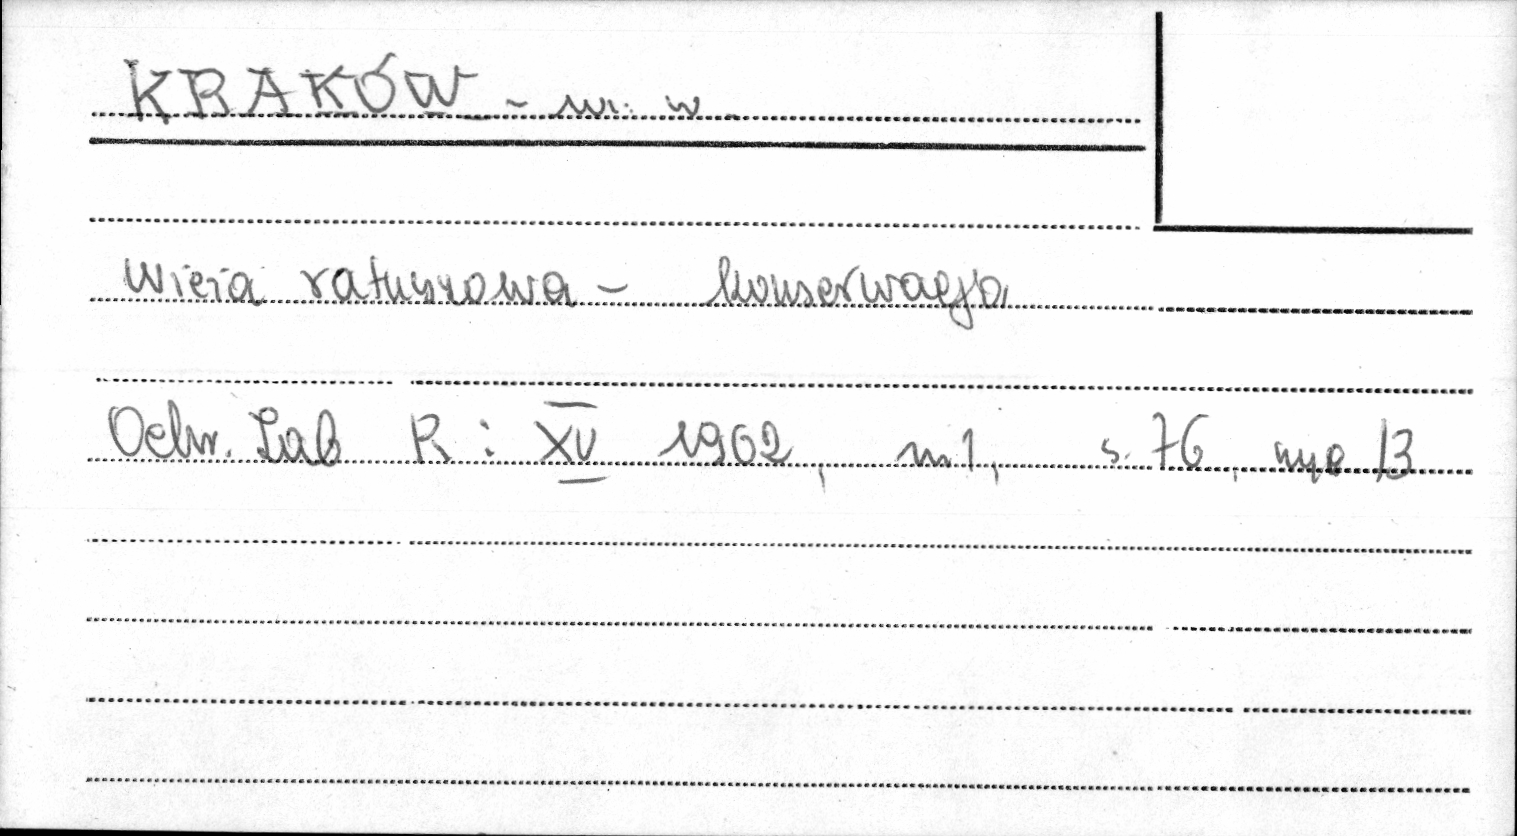 KRAKÓW - m. w.
Wieża ratuszowa - konserwacja
Ochr. Zab R: XV 1962, nr 1, s. 76, ryc 13